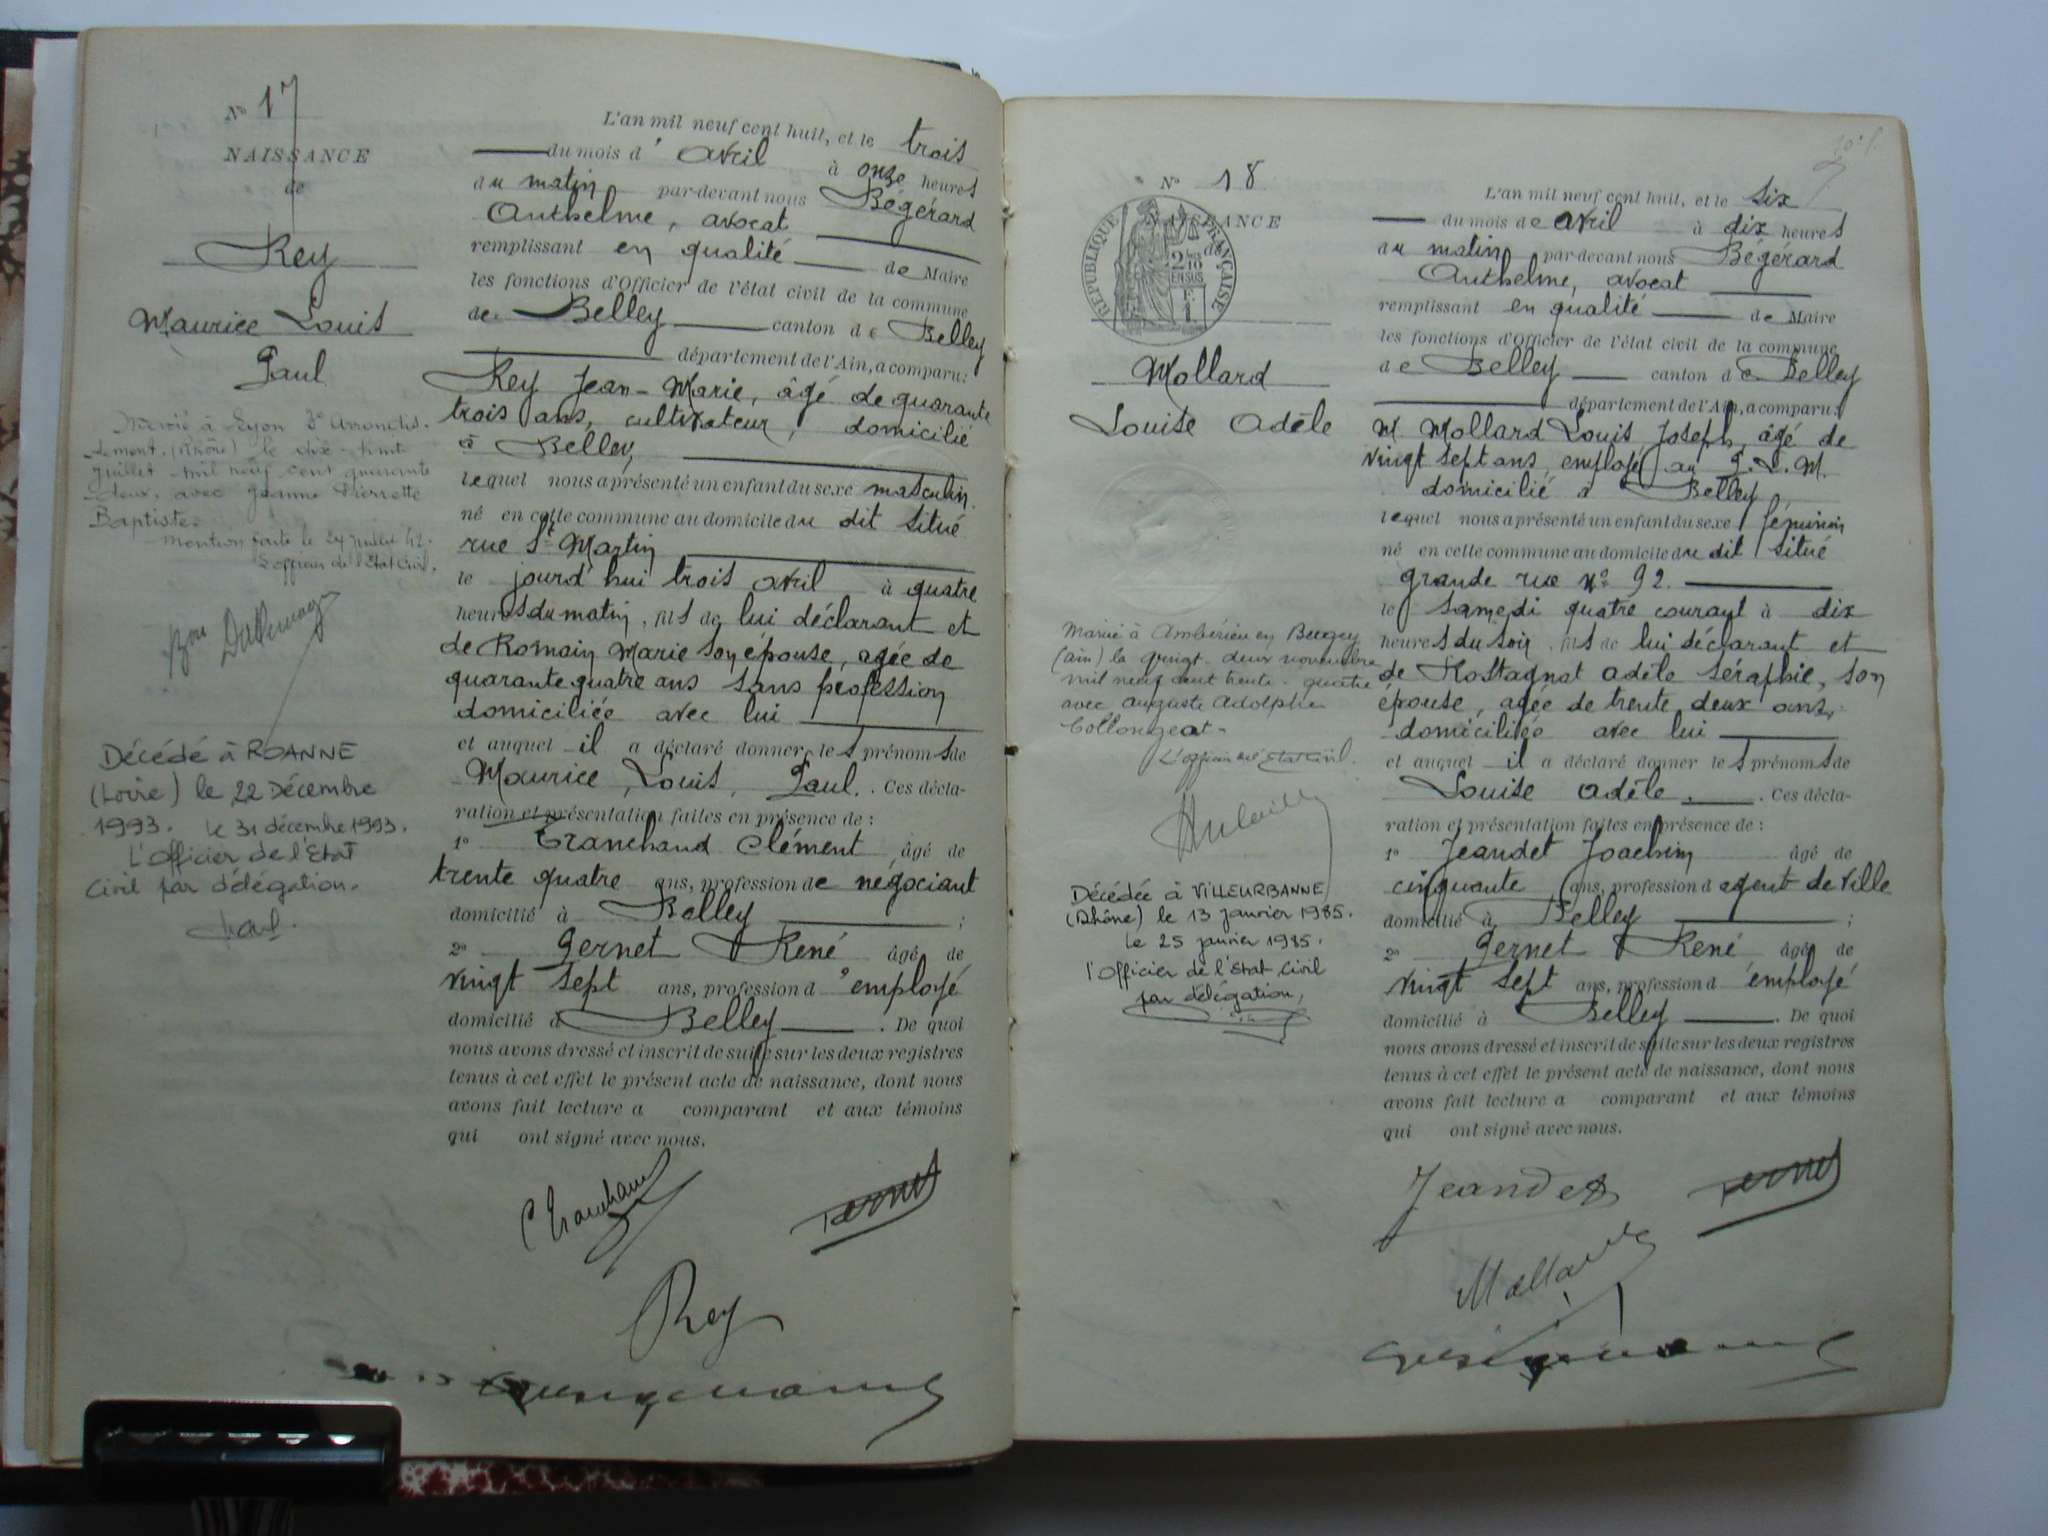 No 17
NAISSANCE
de
Rey
Maurice Louis
Paul
Marié à Lyon 3e Arrondis-
sement, (Rhône) le dix-huit
Juillet mil neuf cent quarante
deux, avec Jeanne Pierrette
Baptiste.
Mention faite le 24 Juillet 42.
L'officier de l'Etat Civil,
Décédé à ROANNE
(Loire) le 22 Décembre
1993. le 31 décembre 1993.
L'Officier de l'Etat
Civil par délégation.
L'an mil neuf cent huit, et le trois
du mois d'avril à onze heures
du matin par-devant nous Bégérard
Anthelme, avocat
remplissant en qualité de Maire
les fonctions d'Officier de l'état civil de la commune
de Belley canton de Belley
département de l'Ain, a comparu:
Rey Jean-Marie, âgé de quarante
trois ans, cultivateur, domicilié
à Belley,
lequel nous a présenté un enfant du sexe masculin
né en cette commune au domicile du dit situé
rue St Martin
le jourd'hui trois avril à quatre
heures du matin, fils de lui déclarant et
de Romain Marie son épouse, agée de
quarante quatre ans sans profession
domiciliée avec lui
et auquel il a déclaré donner les prénoms de
Maurice, Louis, Paul. Ces décla-
ration et présentation faites en présence de:
1o Tranchand Clément âgé de
trente quatre ans, profession de négociant
domicilié à Belley ;
2o Pernet René âgé de
vingt sept ans, profession d'employé
domicilié à Belley . De quoi
nous avons dressé et inscrit de suite sur les deux registres
tenus à cet effet le présent acte de naissance, dont nous
avons fait lecture a comparant et aux témoins
qui ont signé avec nous.
C Tranchand
Pernet
Rey
No 18
NAISSANCE
de
RÉPUBLIQUE FRANÇAISE
2/10 EN SUS
Mollard
Louise Adèle
Marié à Ambérieu en Bugey
(Ain) la vingt-deux novembre
mil neuf cent trente-quatre
avec Auguste Adolphe
Collongeat-
L'officier de l'Etat Civil.
Décédée à VILLEURBANNE
(Rhône) le 13 janvier 1985.
le 25 janvier 1985.
l'Officier de l'Etat Civil
par délégation,
L'an mil neuf cent huit, et le six
du mois de avril à dix heures
du matin par-devant nous Bégérard
Anthelme, avocat
remplissant en qualité de Maire
les fonctions d'Officier de l'état civil de la commune
de Belley canton de Belley
département de l'Ain, a comparu:
M. Mollard Louis Joseph, âgé de
vingt sept ans, employé au P.L.M.
domicilié à Belley,
lequel nous a présenté un enfant du sexe féminin
né en cette commune au domicile du dit situé
grande rue no 92.
le samedi quatre courant à dix
heures du soir, fils de lui déclarant et
de Rostagnat Adèle Séraphie, son
épouse, agée de trente deux ans,
domiciliée avec lui
et auquel il a déclaré donner les prénoms de
Louise Adèle. Ces décla-
ration et présentation faites en présence de:
1o Jeandet Joachim âgé de
cinquante ans, profession d agent de ville
domicilié à Belley ;
2o Pernet René âgé de
vingt sept ans, profession d'employé
domicilié à Belley . De quoi
nous avons dressé et inscrit de suite sur les deux registres
tenus à cet effet le présent acte de naissance, dont nous
avons fait lecture a comparant et aux témoins
qui ont signé avec nous.
Jeandet
Pernet
Mollard